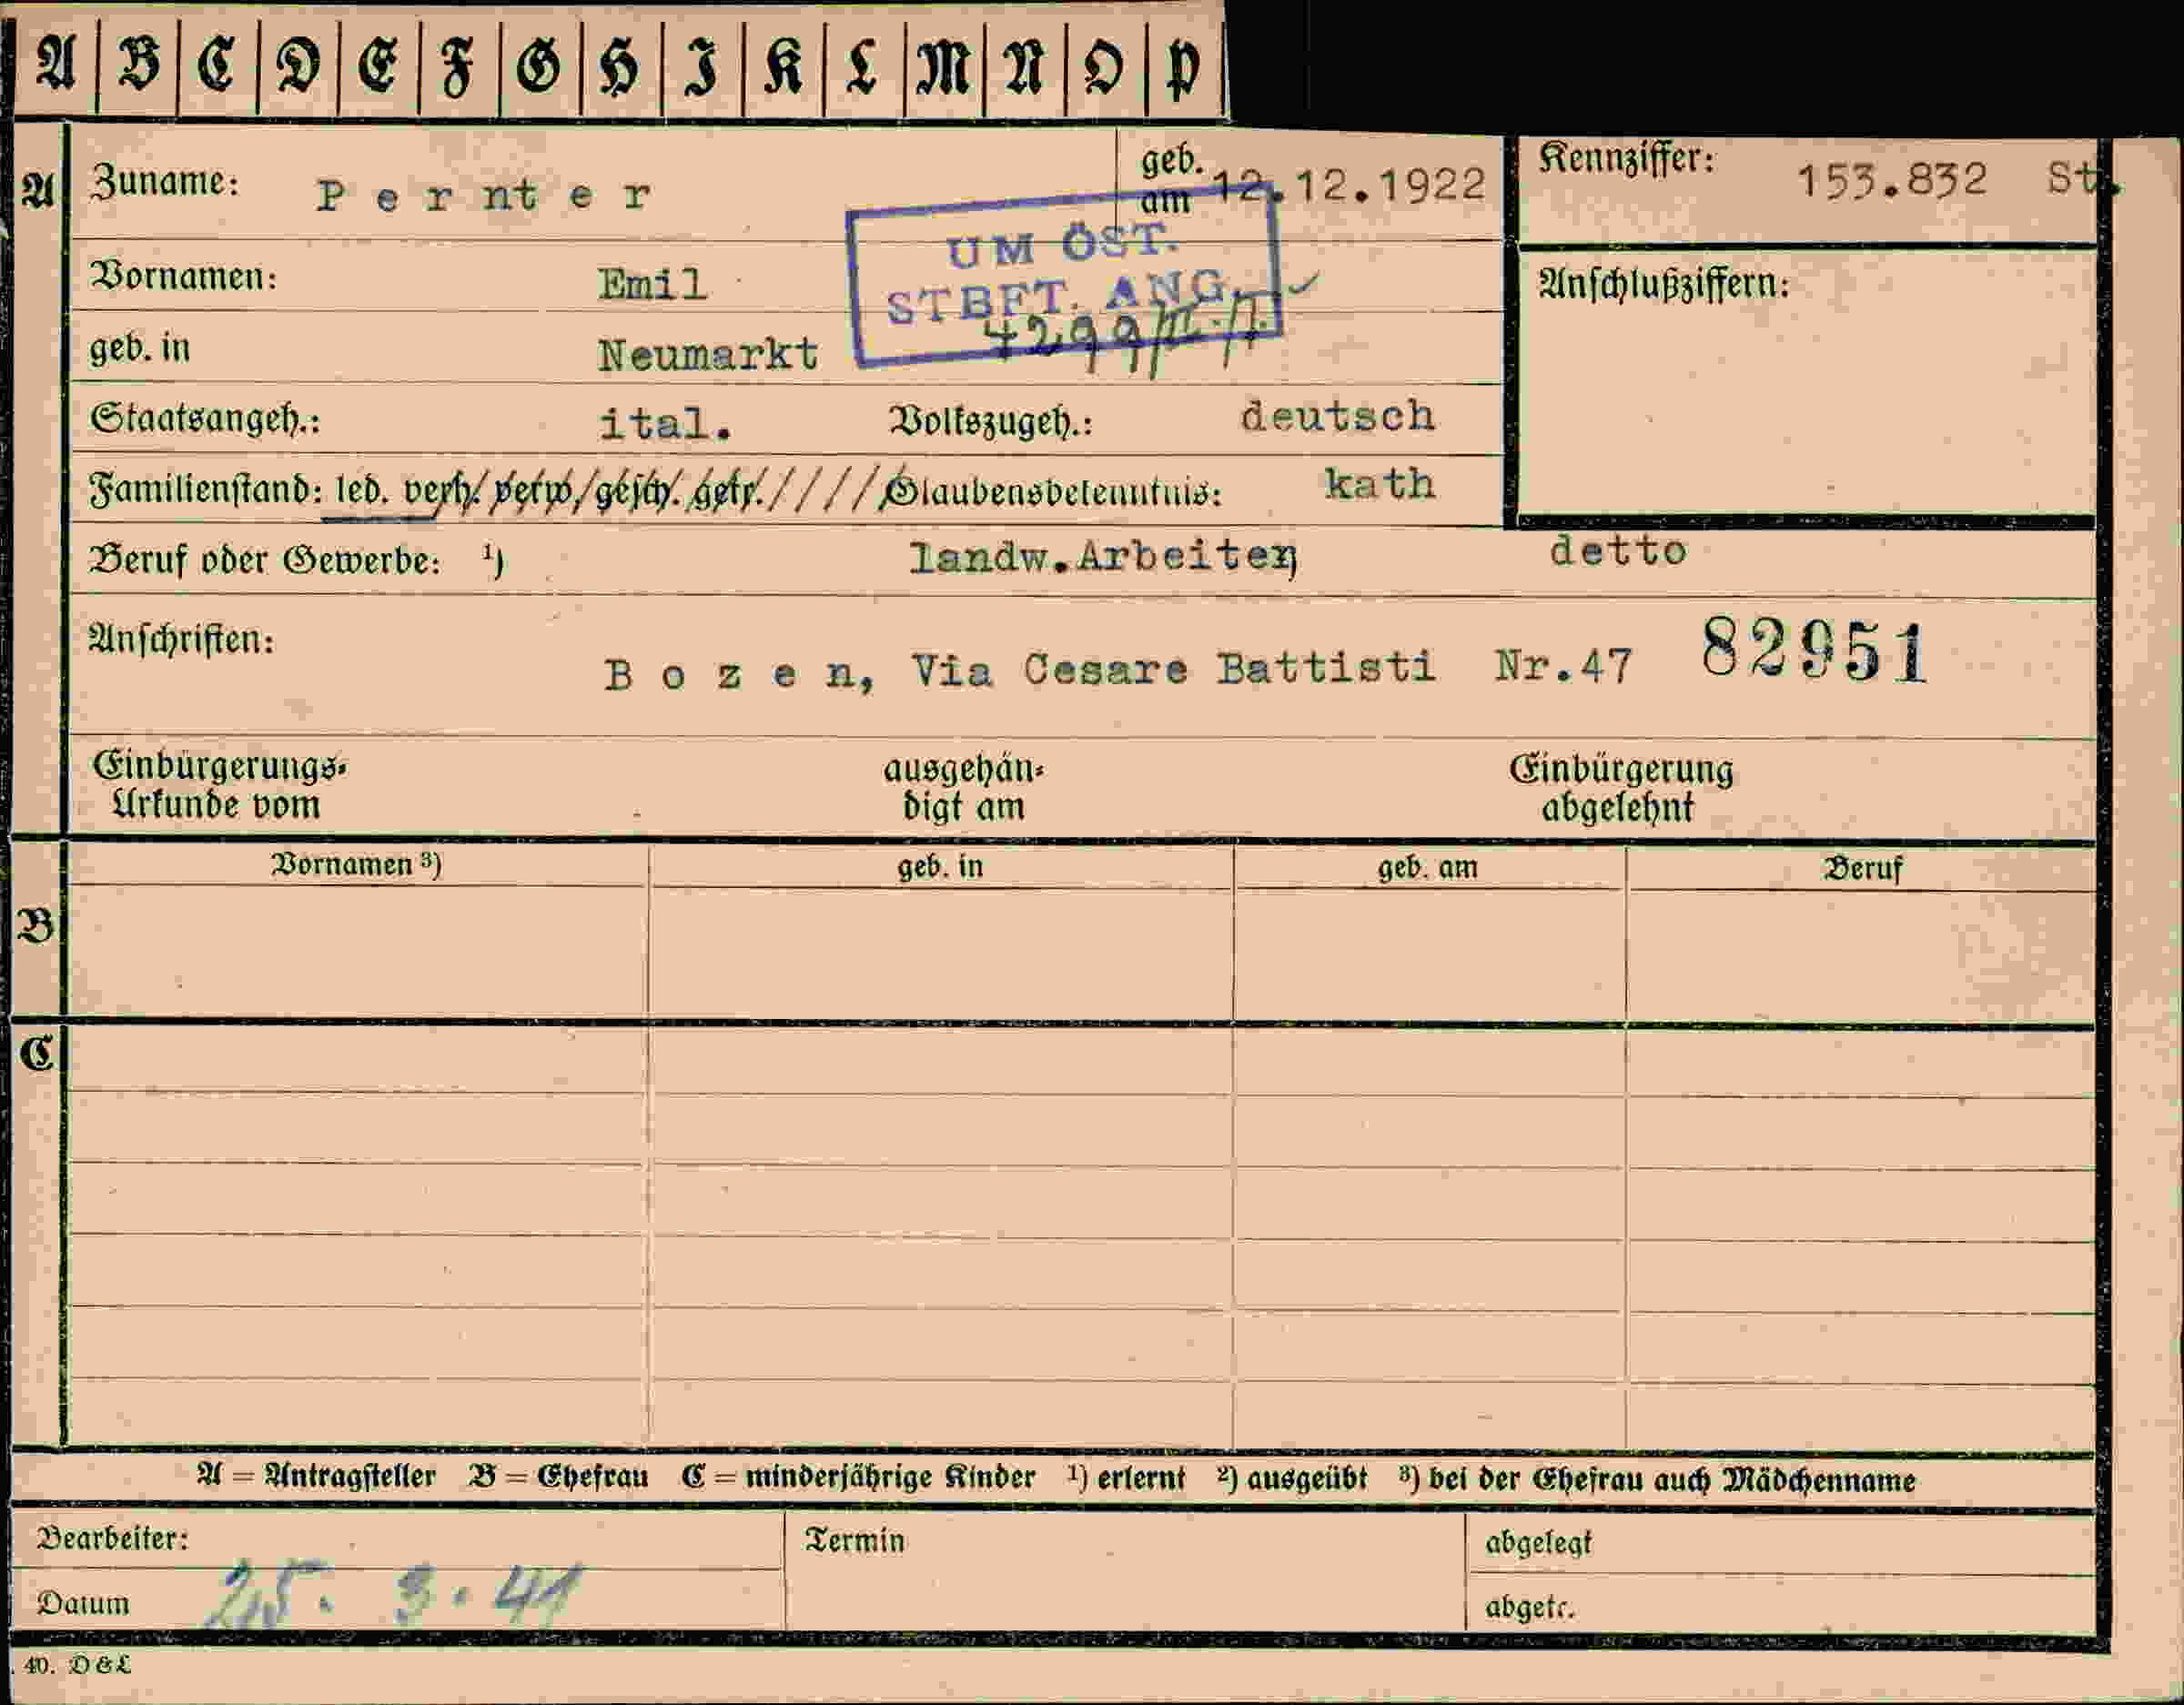 A B C D E F G H I K L M N O P
A Zuname: Pernter geb. am 12.12.1922 Kennziffer: 153.832 St.
UM ÖST.
STBFT. ANG.
Vornamen: Emil Anschlußziffern:
geb. in Neumarkt
Staatsangeh.: ital. Volkszugeh.: deutsch
Familienstand: led. verh. verw. gesch. getr. Glaubensbekenntnis: kath
Beruf oder Gewerbe: ¹) landw.Arbeiter detto
Anschriften: Bozen, Via Cesare Battisti Nr.47 82951
Einbürgerungs- ausgehän- Einbürgerung
Urkunde vom digt am abgelehnt
Vornamen ³) geb. in geb. am Beruf
B
C
A = Antragsteller B = Ehefrau C = minderjährige Kinder ¹) erlernt ²) ausgeübt ³) bei der Ehefrau auch Mädchenname
Bearbeiter: Termin abgelegt
Datum 25. 3. 41 abgetr.
40. D & L